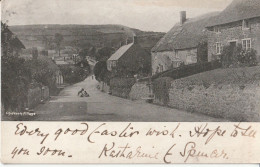 Village
Every good Easter wish. Hope to see
you soon. Katharine E Spencer.